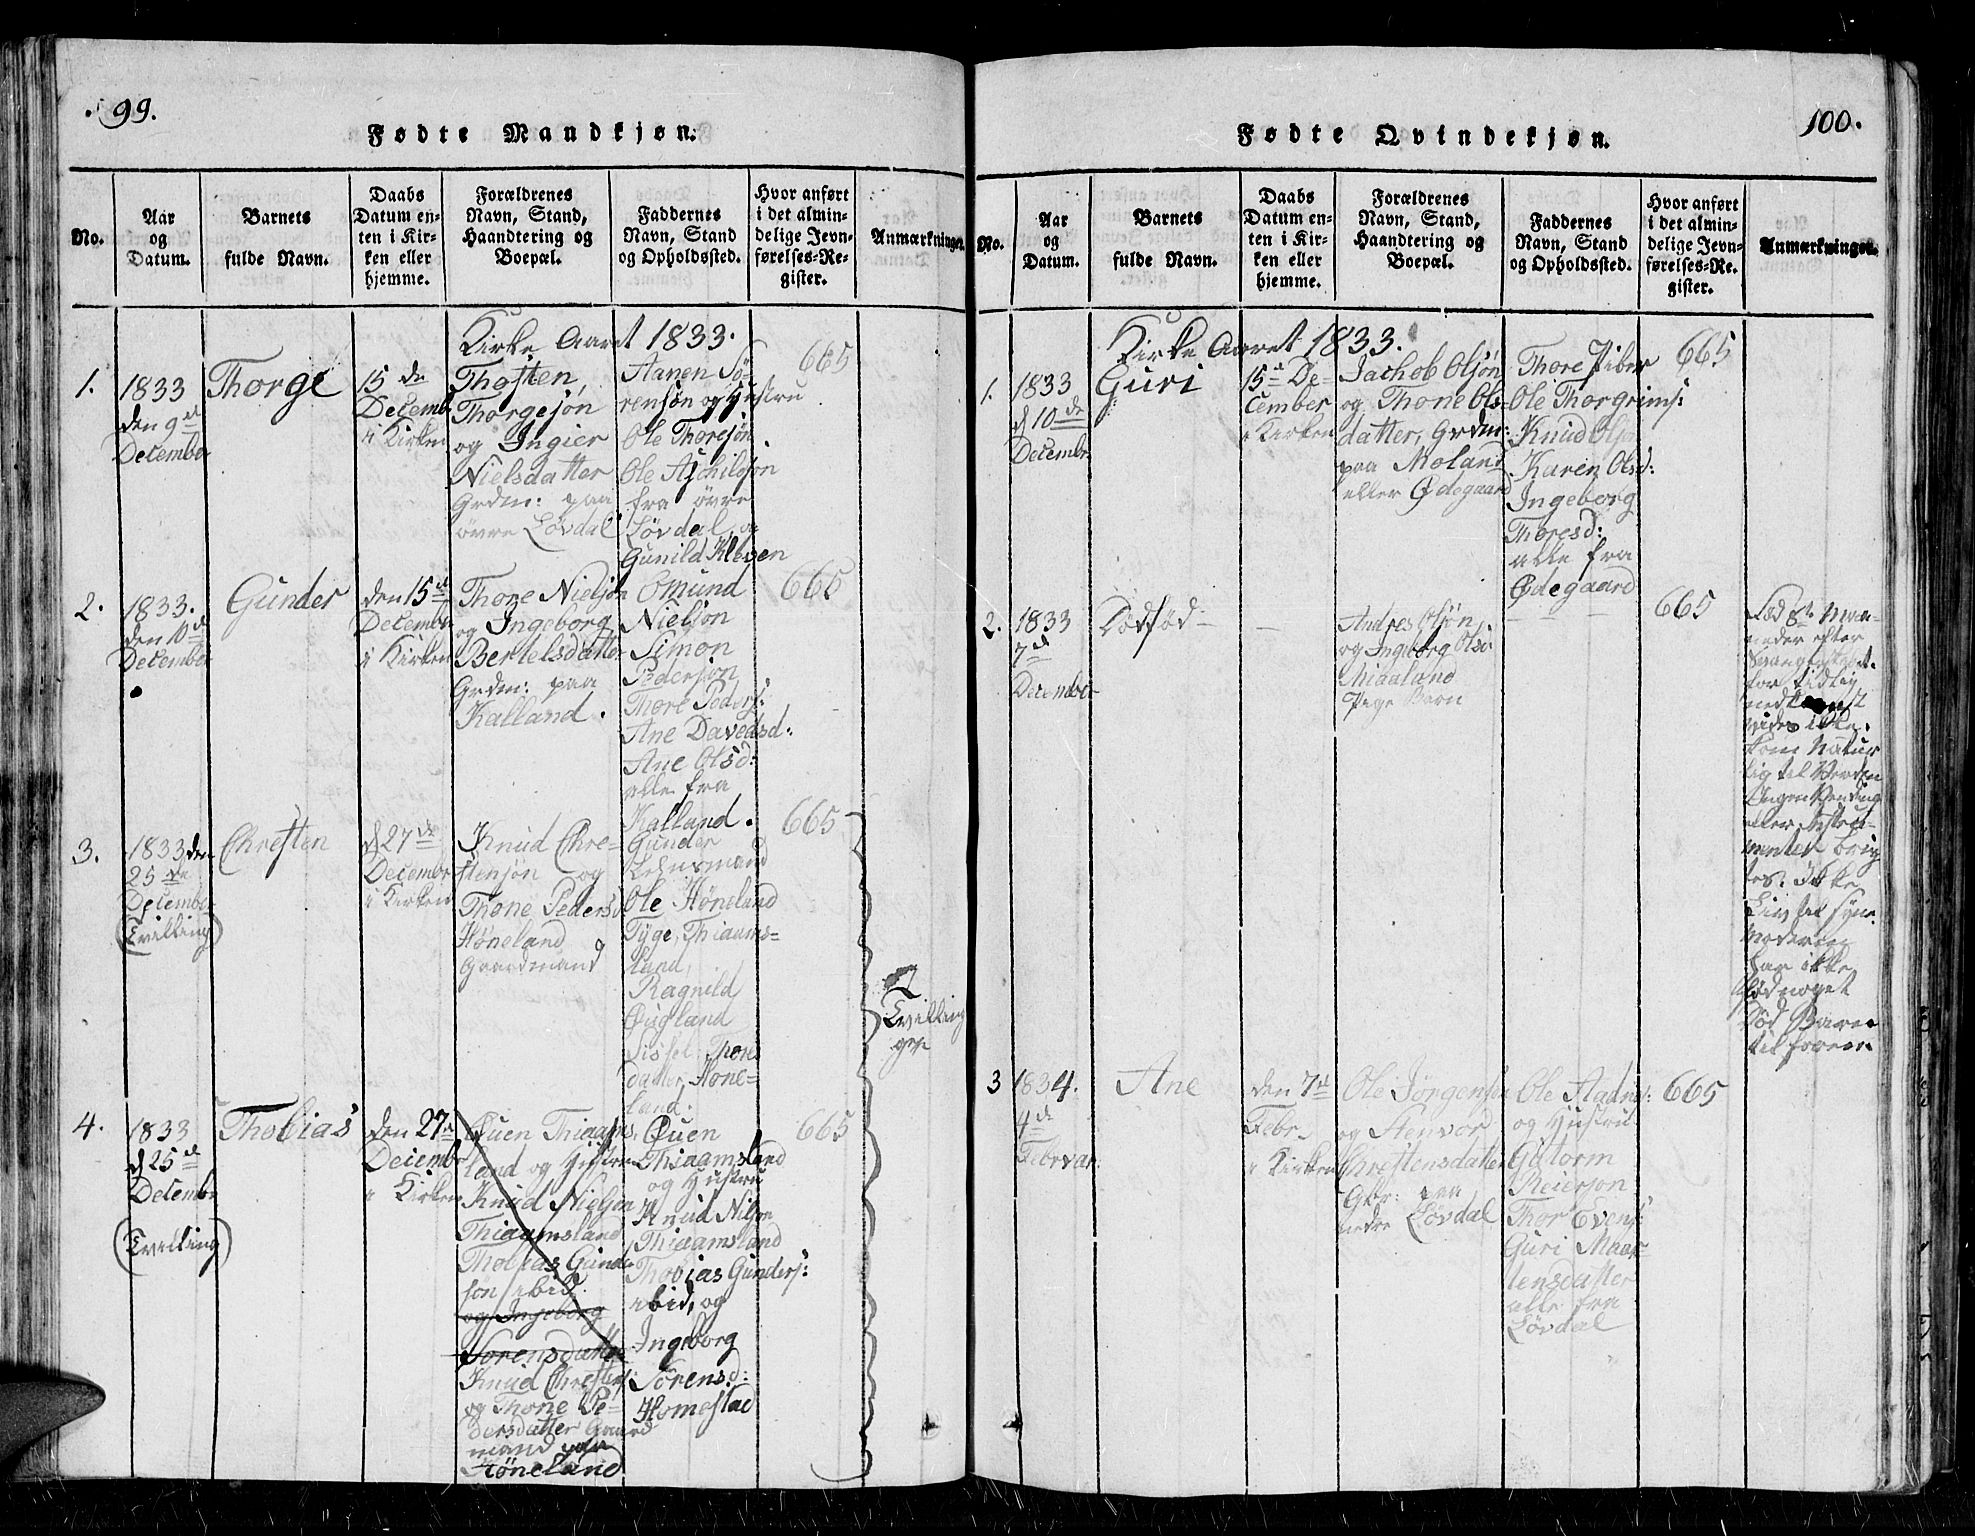 99.
Fødte Mandkjøn.
No.
Aar
og
Datum.
Barnets
fulde Navn.
Daabs
Datum en-
ten i Kir-
ken eller
hjemme.
Forældrenes
Navn, Stand,
Haandtering og
Boepæl.
Faddernes
Navn, Stand
og Opholdssted.
Hvor anført
i det almin-
delige Jevn-
førelses-Re-
gister.
Anmærkninger.
Kirke Aaret 1833.
1.
1833
den 9de
December
Thorge
15de
Decemb
i Kirken
Thosten,
Thorgesøn
og Ingier
Nielsdatter
Grdm: paa
øvre Løvdal
Aanen Sø-
rensøn og Hustru
Ole Thoresøn
Ole Aschilsøn
fra øvre
Løvdal, og
Gunild Kleven
665
2.
1833.
den 10de
December
Gunder
den 15de
December
i Kirken
Thore Nielsøn
og Ingeborg
Bertelsdatter
Grdm: paa
Kalland.
Omund
Nielsøn
Simon
Pedersøn
Thore Peders:
Ane Davedsd:
Ane Olsd:
alle fra
Kalland.
665
3.
1833 den
25de
December
(Tvilling)
Chresten
d 27de
Decembr
i Kirken
Knud Chre-
stensøn og
Thone Pedersd
Høneland
Gaardmand
Gunder
Lehnsmand
Ole Høneland
Tyge, Thiaams-
land,
Ragnild
Øugland
Sissel Thors
datter, Høne-
land:
665
2
Tvilling
ger
4.
1833
d 25de
December
(Tvilling)
Thobias
den 27de
Decembr
i Kirken
Øuen Thiaams
land og Hustru
Knud Nielsen
Thiaamsland
Thobias Gunder
søn ibid.
og Ingeborg
Sorensdatter
Knud Chrestens
og Thone Pe-
dersdatter Gaard
mand paa
Høneland
Øuen
Thiaamsland
og Hustru
Knud Nilsøn
Thiaamsland
Thobias Gunders:
ibid, og
Ingeborg
Sorensd:
Homestad
665
100.
Fødte Qvindekjøn.
No.
Aar
og
Datum.
Barnets
fulde Navn.
Daabs
Datum en-
ten i Kir-
ken eller
hjemme.
Forældrenes
Navn, Stand,
Haandtering og
Boepæl.
Faddernes
Navn, Stand
og Opholdssted.
Hvor anført
i det almin-
delige Jevn-
førelses-Re-
gister.
Anmærkninger.
Kirke Aaret 1833.
1.
1833
d 10de
Decembr
Guri
15de De-
cember
i Kirken
Jachob Olsøn
og Thone Ols-
datter, Grdm:
paa Moland
eller Ødegaard
Thore Piber
Ole Thorgrims:
Knud Olsøn
Karen Olsd:
Ingeborg
Thoresd:
alle fra
Ødegaard
665
2.
1833
7de
December
Dødfød
Andres Olsøn
og Ingeborg Olsd
Thiaaland
Pige Barn
665
Fød 8te Maa-
neder efter
Svangerskabet.
for tidlig
nedkomst
vides ikke.
kom Natur
lig til Verden
Ingen Vending
eller Instru-
menter brug
tes. Ikke
Liv til syne
Moderen
har ikke
fød noget
Død Barn
til foren.
3
1834.
4de
Februar
Ane
den 7de
Febr.
i Kirken
Ole Jørgensen
og Stenvor
Chrestensdatter
Gbr: paa
nedre Løvdal
Ole Aadns:
og Hustru
Gutorm
Reiersøn
Thor Evens:
Guri Maar-
tensdatter
alle fra
Løvdal
665